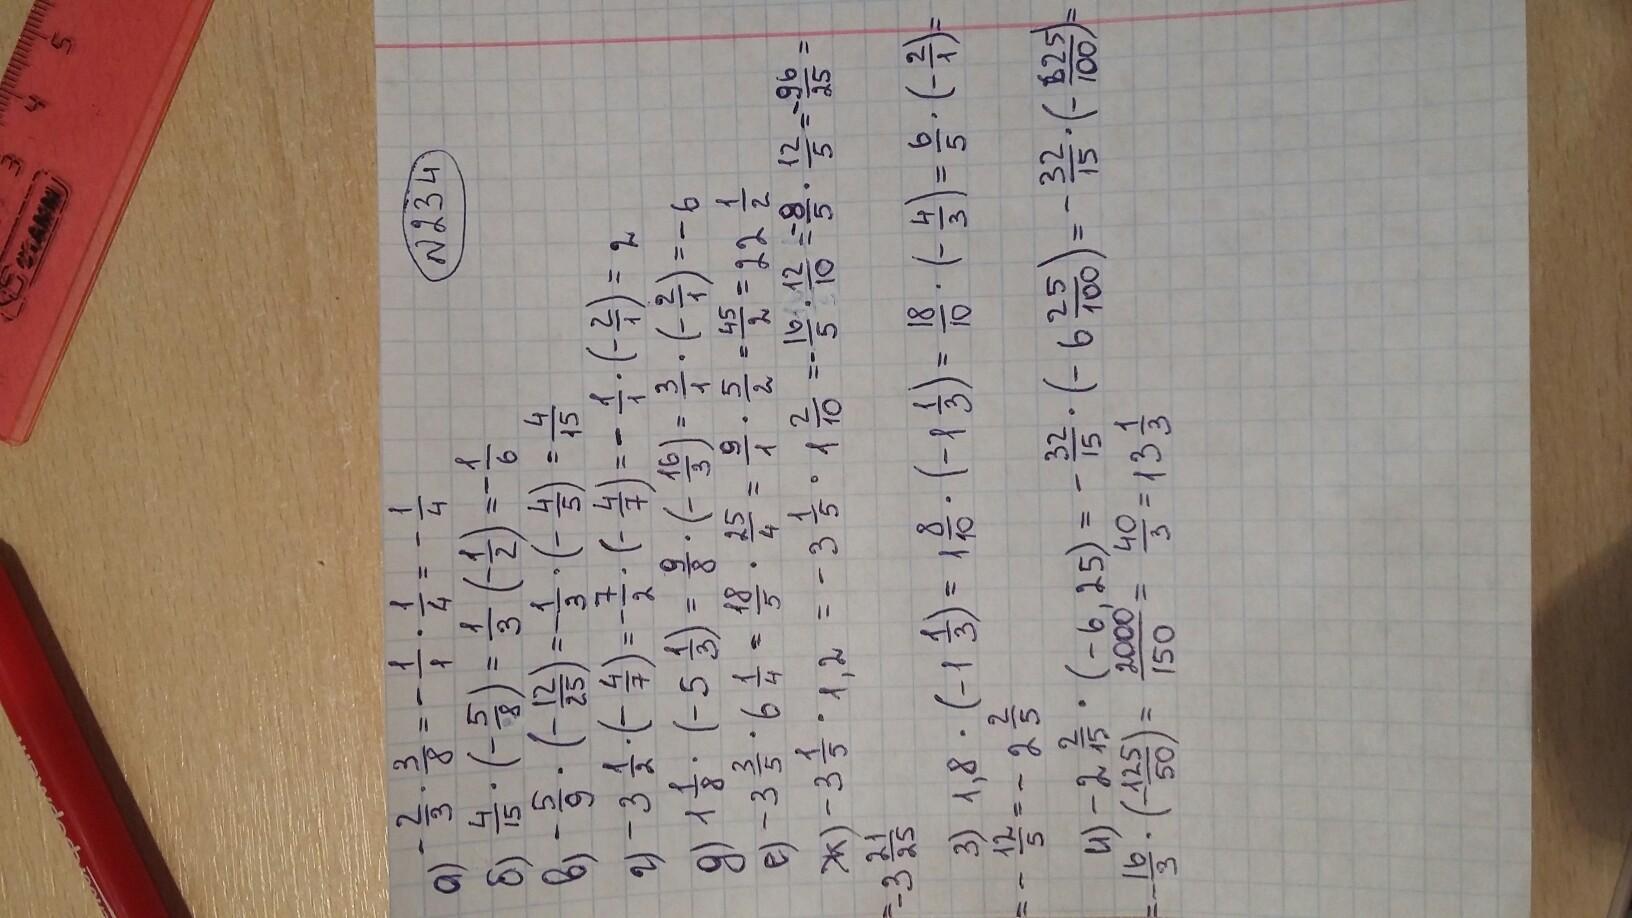 №234
а) -2/3 · 3/8 = -1/1 · 1/4 = -1/4
б) 4/15 · (-5/8) = 1/3 (-1/2) = -1/6
в) -5/9 · (-12/25) = -1/3 · (-4/5) = 4/15
г) -3 1/2 · (-4/7) = -7/2 · (-4/7) = -1/1 · (-2/1) = 2
д) 1 1/8 · (-5 1/3) = 9/8 · (-16/3) = 3/1 · (-2/1) = -6
е) -3 3/5 · 6 1/4 = 18/5 · 25/4 = 9/1 · 5/2 = 45/2 = 22 1/2
ж) -3 1/5 · 1,2 = -3 1/5 · 1 2/10 = -16/5 · 12/10 = -8/5 · 12/5 = -96/25 =
= -3 21/25
з) 1,8 · (-1 1/3) = 1 8/10 · (-1 1/3) = 18/10 · (-4/3) = 6/5 · (-2/1) =
= -12/5 = -2 2/5
и) -2 2/15 · (-6,25) = -32/15 · (-6 25/100) = -32/15 · (-625/100) =
= -16/3 · (-125/50) = 2000/150 = 40/3 = 13 1/3
3 4 5